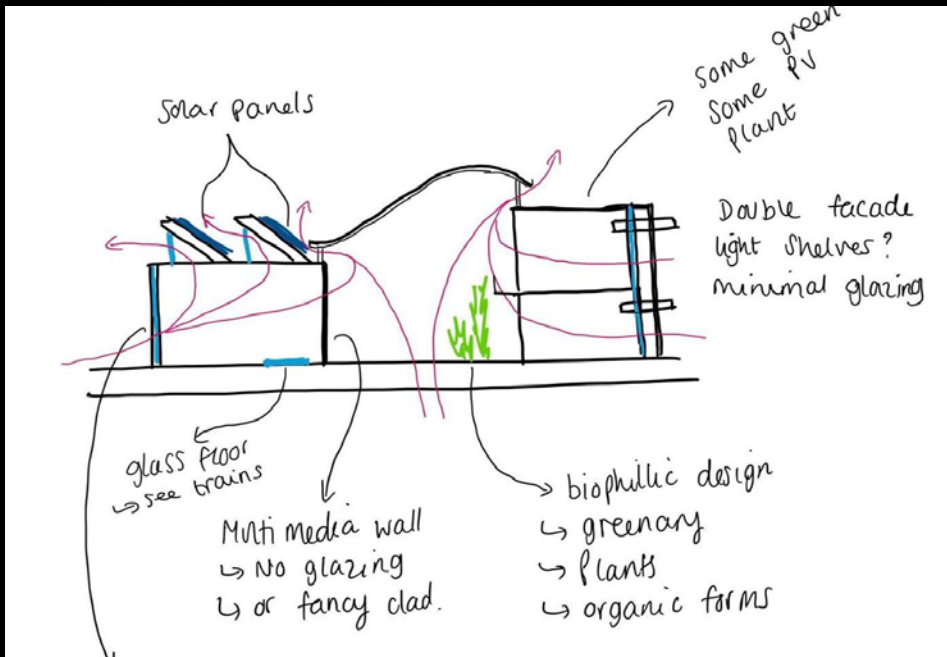 Solar panels
some green
some PV
plant
Double facade
light shelves?
minimal glazing
glass floor
↳ see trains
Multi media wall
↳ No glazing
↳ or fancy clad.
biophillic design
↳ greenary
↳ Plants
↳ organic forms